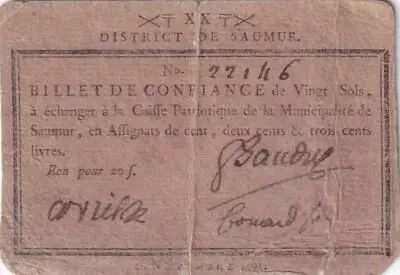 XX
DISTRICT DE SAUMUR.
No. 22146
BILLET DE CONFIANCE de Vingt Sols,
à échanger à la Caisse Patriotique de la Municipalité de
Saumur, en Assignats de cent, deux cents & trois cents
livres.
Bon pour 20 s.